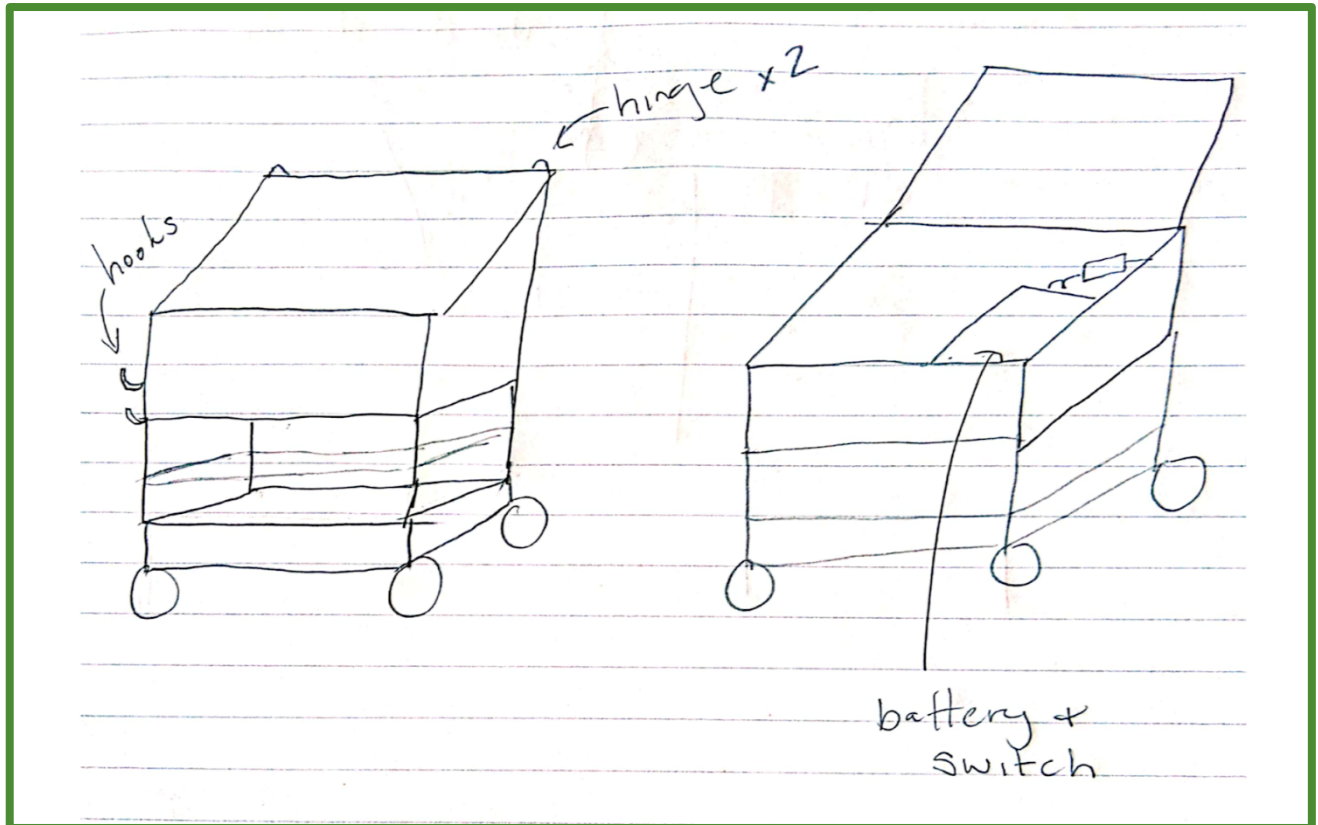 hinge x2
hooks
battery +
switch